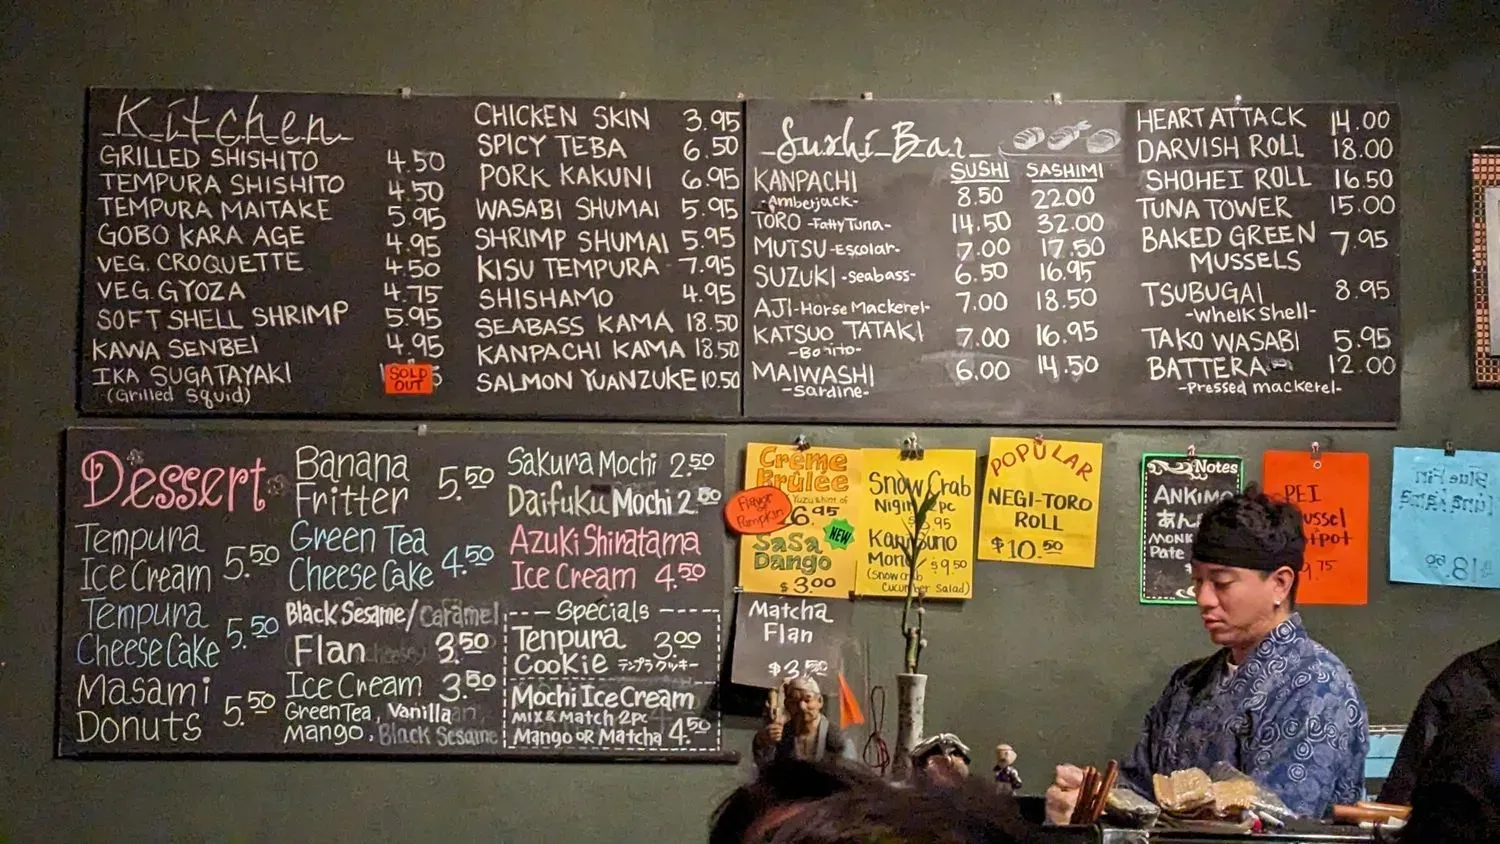 Kitchen
GRILLED SHISHITO 4.50
TEMPURA SHISHITO 4.50
TEMPURA MAITAKE 5.95
GOBO KARA AGE 4.95
VEG. CROQUETTE 4.50
VEG. GYOZA 4.75
SOFT SHELL SHRIMP 5.95
KAWA SENBEI 4.95
IKA SUGATAYAKI SOLD OUT
(Grilled Squid)
CHICKEN SKIN 3.95
SPICY TEBA 6.50
PORK KAKUNI 6.95
WASABI SHUMAI 5.95
SHRIMP SHUMAI 5.95
KISU TEMPURA 7.95
SHISHAMO 4.95
SEABASS KAMA 18.50
KANPACHI KAMA 18.50
SALMON YUANZUKE 10.50
Sushi Bar
SUSHI SASHIMI
KANPACHI 8.50 22.00
-Amberjack-
TORO -Fatty Tuna- 14.50 32.00
MUTSU -Escolar- 7.00 17.50
SUZUKI -Seabass- 6.50 16.95
AJI -Horse Mackerel- 7.00 18.50
KATSUO TATAKI 7.00 16.95
-Bonito-
MAIWASHI 6.00 14.50
-Sardine-
HEART ATTACK 14.00
DARVISH ROLL 18.00
SHOHEI ROLL 16.50
TUNA TOWER 15.00
BAKED GREEN 7.95
MUSSELS
TSUBUGAI 8.95
-Whelk Shell-
TAKO WASABI 5.95
BATTERA 12.00
-Pressed mackerel-
Dessert
Tempura
Ice Cream 5.50
Tempura
Cheese Cake 5.50
Masami
Donuts 5.50
Banana
Fritter 5.50
Green Tea
Cheese Cake 4.50
Black Sesame/Caramel
Flan 3.50
Ice Cream 3.50
Green Tea, Vanilla
Mango, Black Sesame
Sakura Mochi 2.50
Daifuku Mochi 2.50
Azuki Shiratama
Ice Cream 4.50
Specials
Tenpura 3.00
Cookie テンプラクッキー
Mochi Ice Cream
Mix & Match 2pc
Mango or Matcha 4.50
Crème
Brûlée
Flavor of Pumpkin
6.95
NEW
SaSa
Dango
$3.00
Matcha
Flan
$3.50
Snow Crab
Nigiri 2pc
Mono $9.50
(Snow crab
Cucumber Salad)
POPULAR
NEGI-TORO
ROLL
$10.50
Notes
ANKIMO
MONK
Pate
PEI
9.75
Blue Fin